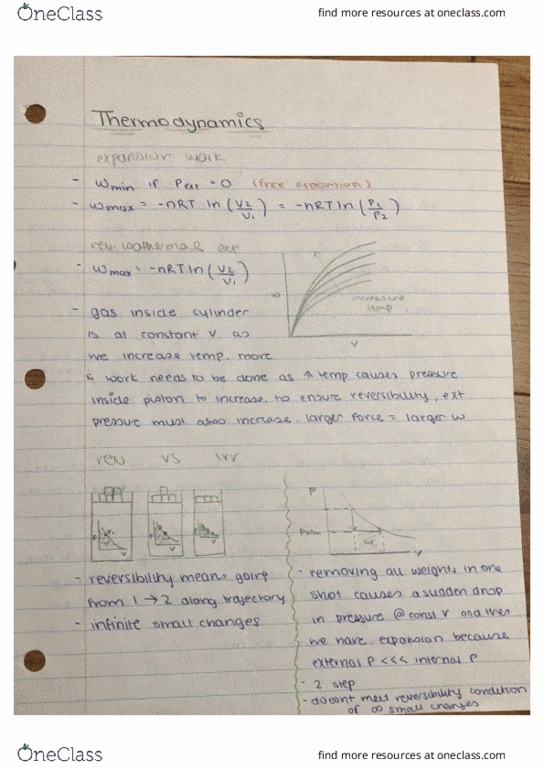 OneClass
find more resources at oneclass.com
Thermodynamics
expansion work
- wmin if Pext = 0 (free expansion)
- wmax = -nRT ln (V2/V1) = -nRT ln (P1/P2)
rev. isothermal exp
- wmax = -nRT ln (V2/V1)
w
increasing temp
V
- gas inside cylinder
is at constant V. as
we increase temp. more
work needs to be done as ↑ temp causes pressure
inside piston to increase. to ensure reversibility, ext
pressure must also increase. larger force = larger w
rev vs irr
P
V
P
V
P
V
P
w
V
- reversibility means going
from 1 → 2 along trajectory
- infinite small changes
- removing all weights in one
shot causes a sudden drop
in pressure @ const V and then
we have expansion because
external P <<< internal P
- 2 step
- doesnt meet reversibility condition
of ∞ small changes
OneClass
find more resources at oneclass.com